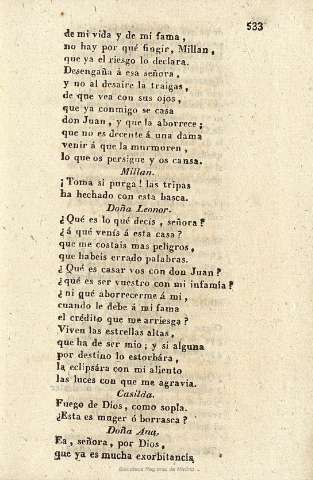 533
de mi vida y de mi fama,
no hay por qué fingir, Millan,
que ya el riesgo lo declara.
Desengaña á esa señora,
y no al desaire la traigas,
de que vea con sus ojos,
que ya conmigo se casa
don Juan, y que la aborrece;
que no es decente á una dama
venir á que la murmoren,
lo que os persigue y os cansa.
Millan.
¡Toma si purga! las tripas
ha hechado con esta basca.
Doña Leonor.
¿Qué es lo qué decis, señora?
¿á qué venís á esta casa?
que me costais mas peligros,
que habeis errado palabras.
¿Qué es casar vos con don Juan?
¿qué es ser vuestro con mi infamia?
¿ni qué aborrecerme á mi,
cuando le debe á mi fama
el crédito que me arriesga?
Viven las estrellas altas,
que ha de ser mio; y si alguna
por destino lo estorbára,
la eclipsára con mi aliento
las luces con que me agravia.
Casilda.
Fuego de Dios, como sopla.
¿Esta es muger ó borrasca?
Doña Ana.
Ea, señora, por Dios,
que ya es mucha exorbitancia
Biblioteca Regional de Madrid